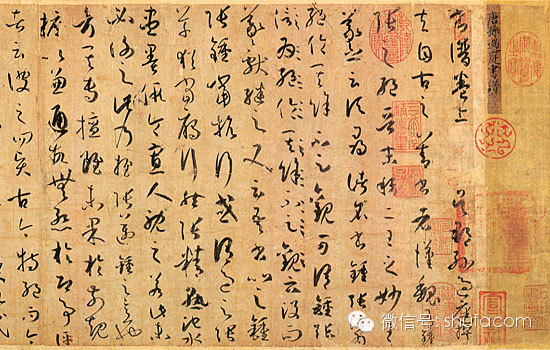 唐孫過庭書譜
書譜卷上 吳郡孫過庭撰
夫自古之善書者漢魏有鍾
張之絕晉末稱二王之妙王
羲之云頃尋諸名書鍾張信為
絕倫其餘不足觀可謂鍾張
信為絕倫其餘不足觀云沒而
羲獻繼之又云吾書比之鍾
張鍾當抗行或謂過之張
草猶當雁行然張精熟池水
盡墨假令寡人耽之若此未
必謝之此乃推張邁鍾之意也
考其專擅雖未果於前規
摭以兼通故無慚於即事評
者云彼之四賢古今特絕而今
微信号: shufacom